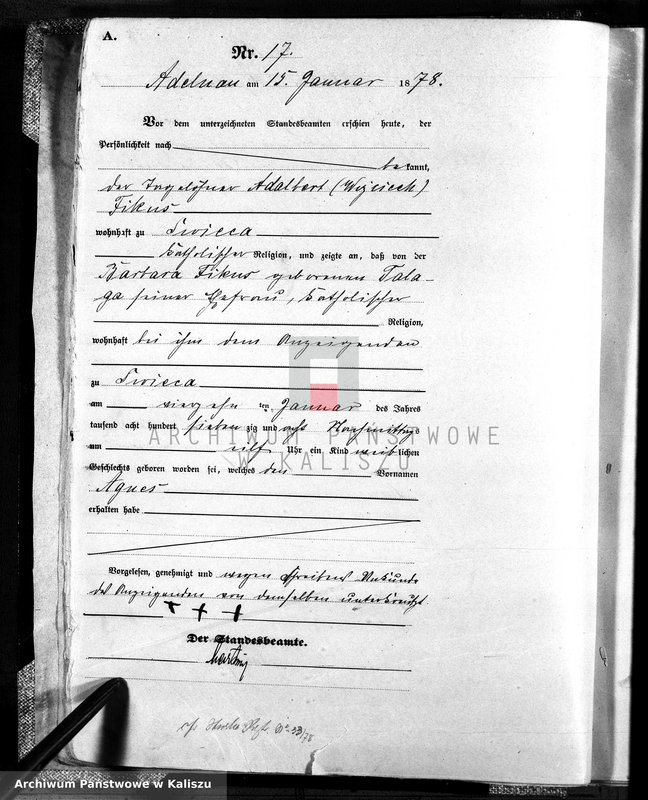 A.
Nr. 17.
Adelnau am 15. Januar 1878.
Vor dem unterzeichneten Standesbeamten erschien heute, der
Persönlichkeit nach
bekannt,
der Tagelöhner Adalbert (Wojciech)
Fikus
wohnhaft zu Swieca
katholischer Religion, und zeigte an, daß von der
Barbara Fikus geborenen Tala-
ga seiner Ehefrau, katholischer
Religion,
wohnhaft bei ihm dem Anzeigenden
zu Swieca
am vierzehnten Januar des Jahres
tausend acht hundert siebenzig und acht Nachmittags
um elf Uhr ein Kind weiblichen
Geschlechts geboren worden sei, welches den Vornamen
Agnes
erhalten habe
Vorgelesen, genehmigt und wegen Schreibens Unkunde
des Anzeigenden von demselben unterkreuzt
+ + +
Der Standesbeamte.
ARCHIWUM PAŃSTWOWE
W KALISZU
Archiwum Państwowe w Kaliszu